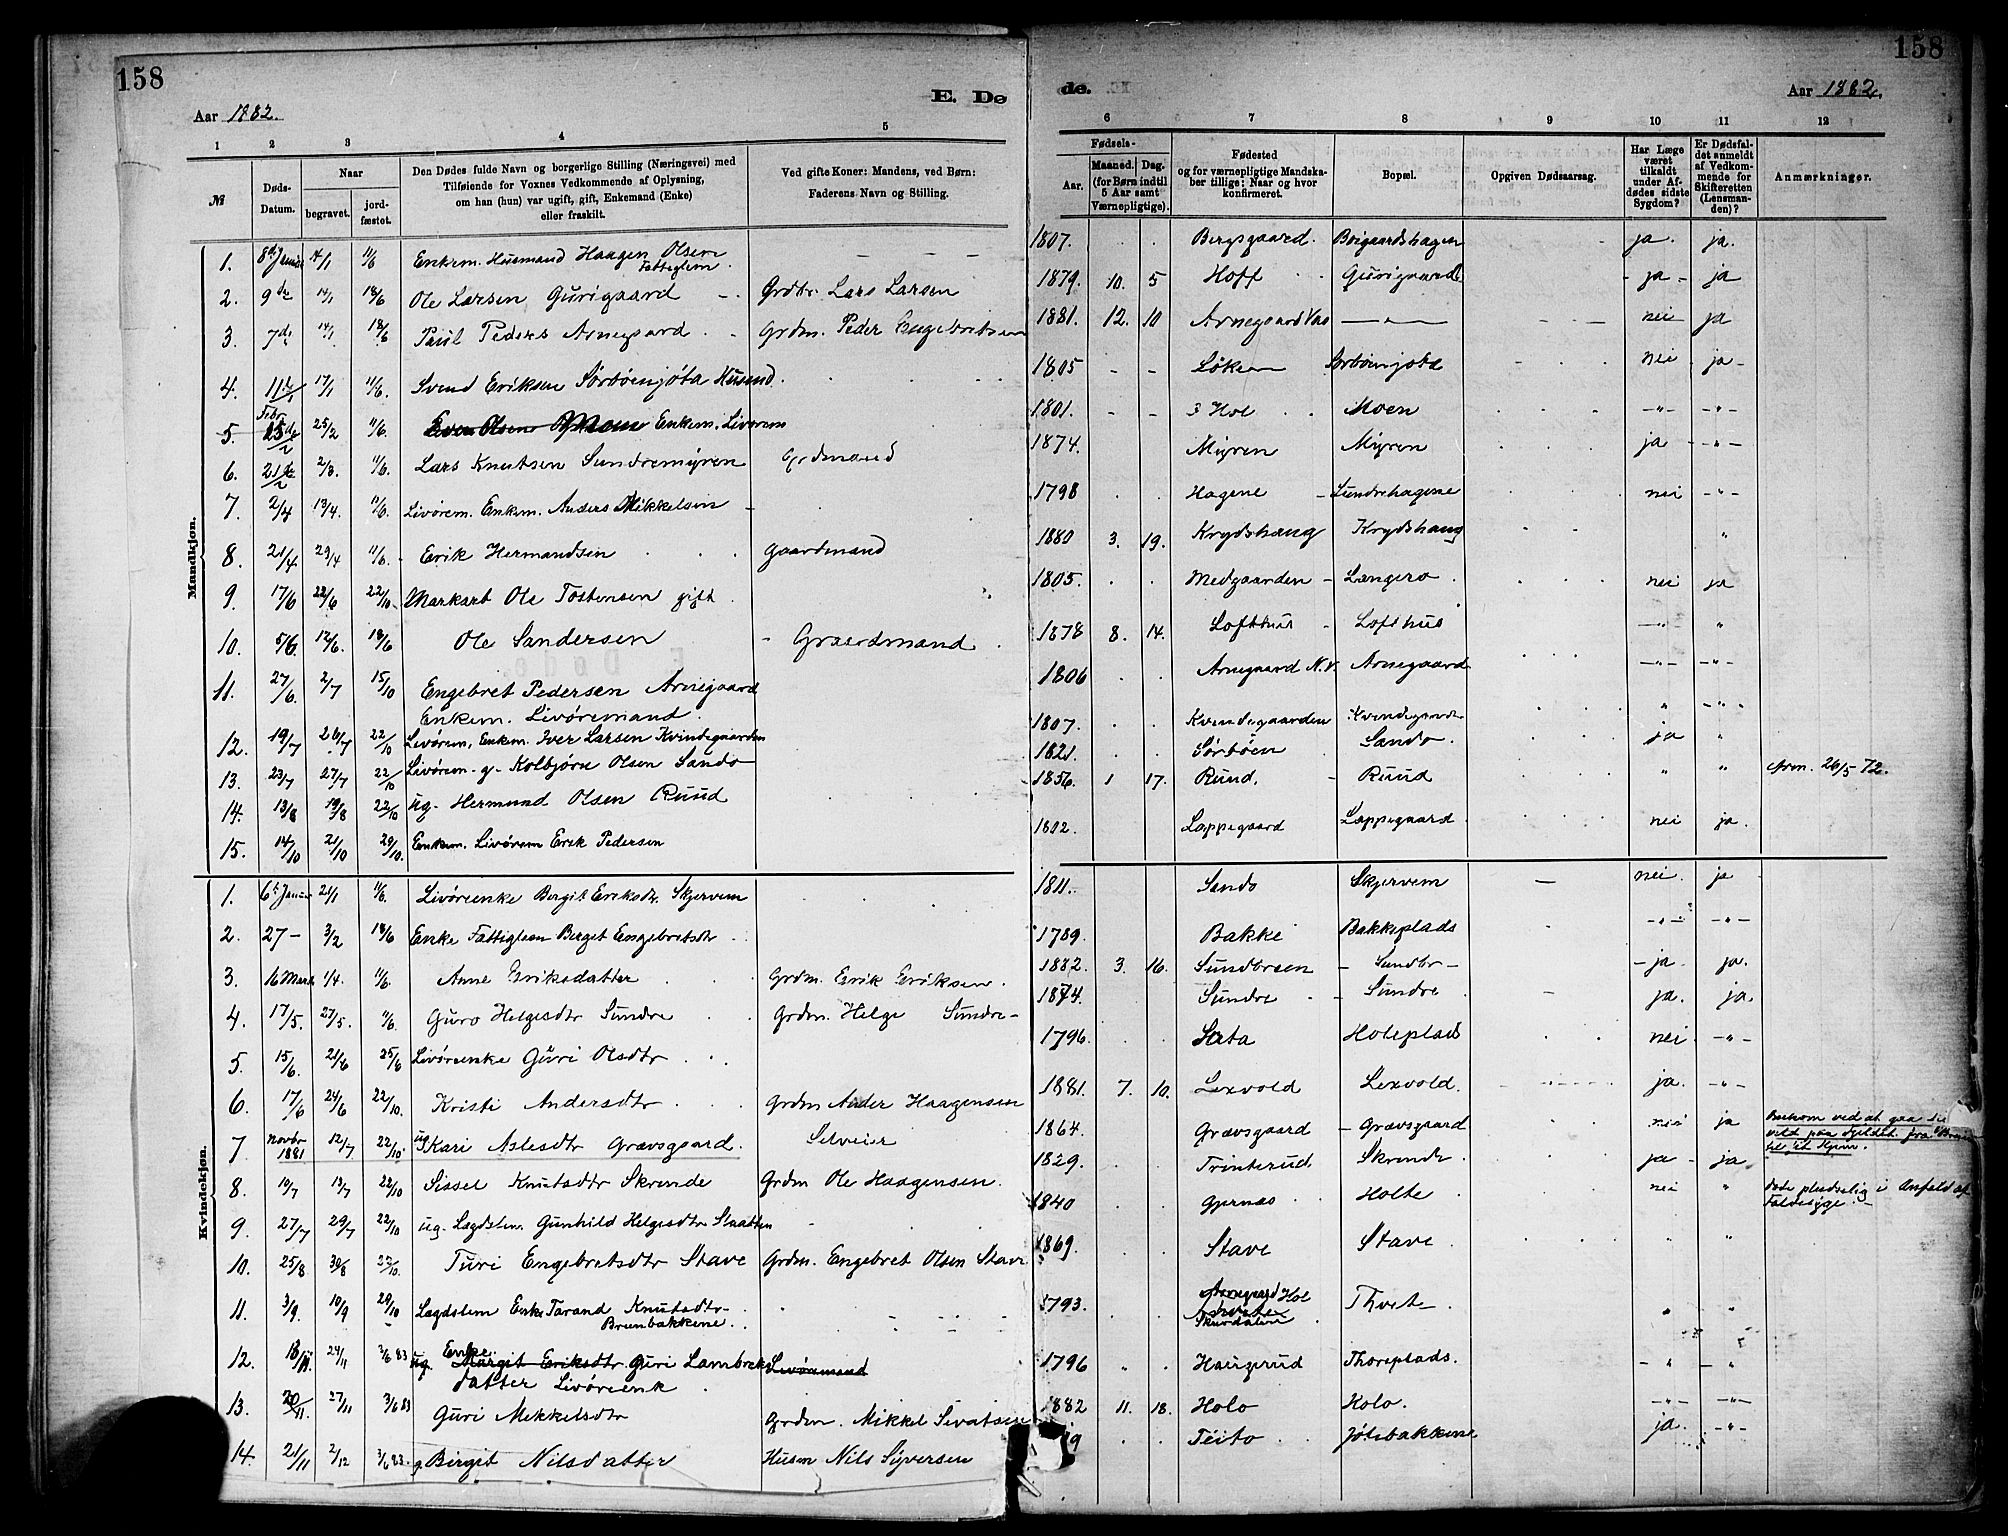 158
Aar 1882.
E. Dø
1 2 3 4 5
№
Døds-Datum.
Naar
begravet.
jord-fæstet.
Den Dødes fulde Navn og borgerlige Stilling (Næringsvei) med
Tilføiende for Voxnes Vedkommende af Oplysning,
om han (hun) var ugift, gift, Enkemand (Enke)
eller fraskilt.
Ved gifte Koner: Mandens, ved Børn:
Faderens Navn og Stilling.
Mandkjøn.
1. 14/1 11/6 Enkem. Husmand Haagen Olsen
Fattiglem
2. 9de 14/1 18/6 Ole Larsen Gurigaard Lars Larsen
3. 7de 14/1 18/6 Paul Peders Arnegaard Grdm. Peder Engebretsen
4. 17/1 11/6. Svend Eriksen
Febr
5. 25/2 11/6. Enkem. Livørem
6. 2/3. 11/6. Lars Knutsen Sundremyren Grdmand
7. 2/4 13/4. 11/6. Livørem. Enkem. Anders Mikkelsen
8. 21/4 29/4 11/6. Erik Hermandsen Gaardmand
9. 17/6 22/6 22/10. Ole Tostensen gift
10. 5/6. 12/6. 18/6 Ole Sandersen Graardmand
11. 27/6. 2/7 15/10 Engebret Pedersen Arnegaard
Enkem. Livøremand.
12. 19/7 26/7 22/10 Livørem, Enkem. Iver Larsen Kvindegaarden
13. 23/7 27/7 22/10 Livørem. g. Kolbjørn Olsen Sando
14. 13/8 19/8 22/10 ug. Hermund Olsen Ruud
15. 14/10 21/10 29/10. Enkem. Livørem Erik Pedersen
Kvindekjøn.
1. 21/1 11/6. Livøreenke Birgit Eriksdtr. Skjervem
2. 27 – 3/2 18/6 Enke Fattiglem Birgit Engebretsdtr
3. 16 Marts 1/4. 11/6. Anne Eriksdatter Grdm. Erik Eriksen.
4. 17/5. 27/5. 11/6. Guro Helgesdtr Sundre Grdm. Helge Sundre –
5. 15/6. 21/6 25/6 Livøreenke Guri Olsdtr
6. 17/6 24/6 22/10. Kristi Andersdtr Grdm Ander Haagensen
7 Novbr 1881 12/7 22/10. ug Kari Aslesdtr Grævsgaard. Selveier
8. 10/7 13/7 22/10 Sissel Knutsdtr Skrinde Grdm Ole Haagensen.
9. 27/7 29/7 22/10 ug. Lægdslem. Gunhild Helgesdtr
10. 25/8 30/8 22/10. Turi Engebretsdtr Stave Grdm. Engebret Olsen Stave
11. 3/9. 10/9 29/10 Lægdslem Enke Tarand Knutsdtr
Brunbakkene.
12. 24/11 3/6 83 ug. Enke.
Margit Eriksdtr. Guri Lambrets Livøremand
datter Livøreenk
13. 20/11. 27/11 3/6 83 Guri Mekkelsdtr Grdm. Mikkel Sivatsen
14. 21/11 2/12 3/6 83. g. Birgit Nilsdatter Husm Nils Syversen
158
de.
Aar 1882.
6 7 8 9 10 11 12
Fødsels-
Aar.
Maaned. Dag.
(for Børn indtil
5 Aar samt
Værnepligtige).
Fødested
og for værnepligtige Mandska-
ber tillige: Naar og hvor
konfirmeret.
Bopæl.
Opgiven Dødsaarsag.
Har Læge
været
tilkaldt
under Af-
dødes sidste
Sygdom?
Er Dødsfal-
det anmeldt
af Vedkom-
mende for
Skifteretten
(Lensman-
den)?
Anmærkninger.
1807. Bergsgaard. ja. ja.
1879. 10. 5 Hoff Gurigaard. ja – ja
1881. 12. 10 Arnegaard – " – nei – ja
1805 – – Løken nei. ja –
1801. – – Hol Moen – " – – " –
1874. Myren Myren ja – – " –
1798 Hagene – Sundrehagene nei – " –
1880 3. 19. Krydshaug Krydshaug "
1805. Medgaarden – Længero nei ja
1878 8. 14. Lofthus – Lofthus – " – "
1806 Arnegaard N.V. Arnegaard – " – – " –
1807. Kvindegaarden " – " –
1821. Sørbøen Sando. ja "
1856. 1 17. Ruud. – Ruud " " 26/5 72.
1802. Lappegaard Lappegaard nei ja.
1811. Sando Skjervem – nei. ja
1789. Bakke Bakkeplads – " – – " –
1882. 3. 16. – Sundbr – – ja – ja.
1874. Sundre – Sundre – ja. ja.
1796. Holeplads nei – " –
1881. 7. 10. Lexvold Lexvold. ja. – " –
1864. Grævsgaard – Grævsgaard nei ja
Bortkom ved at gaa sig
vild paa Fjeldet. fra
1829. Trinterud. Skrinde ja – ja.
1840 Gjernas Holte nei " Døde pludselig i Anfald af
Faldesyge. –
1869. Stave Stave " "
1793. Hol
Skurdalen
Thveite " "
1796 " Haugerud – " – – "
1882 11. 18. Holo Holo. – " – – " –
9 Teito ja. – " –